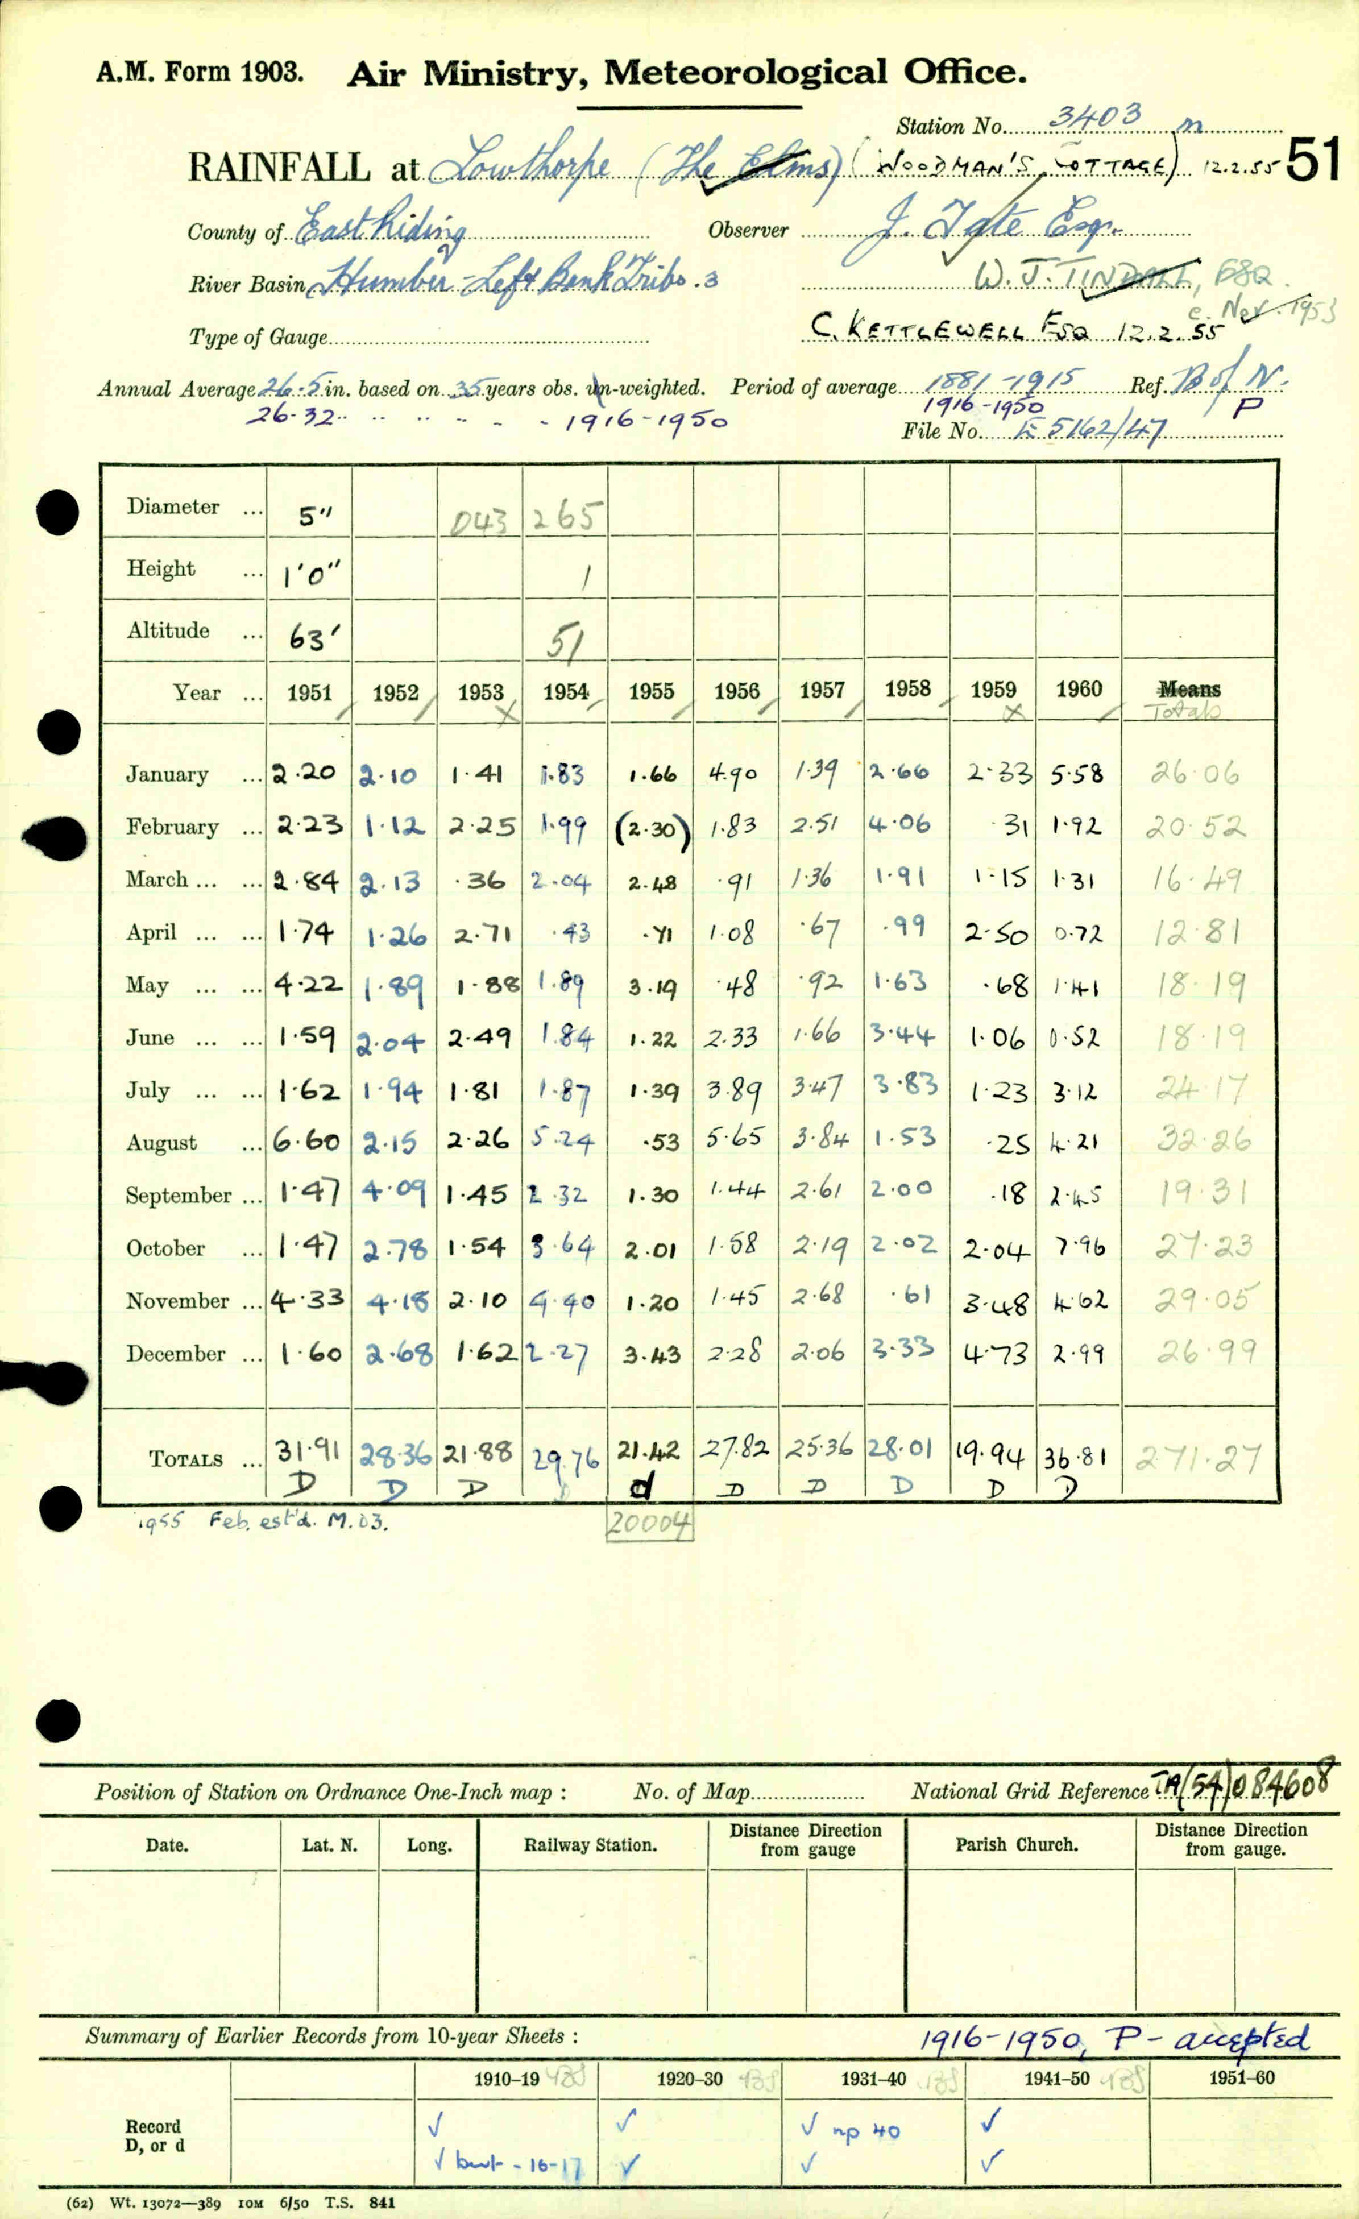 A.M. Form 1903. Air Ministry, Meteorological Office.
Station No. 3403 m
RAINFALL at Lowthorpe (The Elms) (WOODMAN'S COTTAGE) 12.2.55 51
County of East Riding Observer J. Tate Esq.
River Basin Humber - Left Bank Tribs. 3 W. J. TINDALL, ESQ.
c. Nov. 1953
Type of Gauge C. KETTLEWELL ESQ 12.2.55
Annual Average 26.5 in. based on 35 years obs. un-weighted. Period of average 1881-1915 Ref. B of N.
26.32 " " " " - 1916-1950 1916-1950 P
File No. E 5162/47
Diameter ... 5" 043 265
Height ... 1'0" 1
Altitude ... 63' 51
Year ... 1951 1952 1953 1954 1955 1956 1957 1958 1959 1960 Means
Totals
January ... 2.20 2.10 1.41 1.83 1.66 4.90 1.39 2.66 2.33 5.58 26.06
February ... 2.23 1.12 2.25 1.99 (2.30) 1.83 2.51 4.06 .31 1.92 20.52
March ... ... 2.84 2.13 .36 2.04 2.48 .91 1.36 1.91 1.15 1.31 16.49
April ... ... 1.74 1.26 2.71 .43 .71 1.08 .67 .99 2.50 0.72 12.81
May ... ... 4.22 1.89 1.88 1.89 3.19 .48 .92 1.63 .68 1.41 18.19
June ... ... 1.59 2.04 2.49 1.84 1.22 2.33 1.66 3.44 1.06 0.52 18.19
July ... ... 1.62 1.94 1.81 1.87 1.39 3.89 3.47 3.83 1.23 3.12 24.17
August ... 6.60 2.15 2.26 5.24 .53 5.65 3.84 1.53 .25 4.21 32.26
September ... 1.47 4.09 1.45 2.32 1.30 1.44 2.61 2.00 .18 2.45 19.31
October ... 1.47 2.78 1.54 3.64 2.01 1.58 2.19 2.02 2.04 7.96 27.23
November ... 4.33 4.18 2.10 4.40 1.20 1.45 2.68 .61 3.48 4.62 29.05
December ... 1.60 2.68 1.62 2.27 3.43 2.28 2.06 3.33 4.73 2.99 26.99
TOTALS ... 31.91 28.36 21.88 29.76 21.42 27.82 25.36 28.01 19.94 36.81 271.27
D D D D d D D D D D
1955 Feb. est'd. M.O3. 20004
Position of Station on Ordnance One-Inch map : No. of Map National Grid Reference TA(54)084608
Date. Lat. N. Long. Railway Station. Distance Direction from gauge Parish Church. Distance Direction from gauge.
Summary of Earlier Records from 10-year Sheets : 1916-1950, P - accepted
1910–19 1920–30 1931–40 1941–50 1951–60
Record ✓ ✓ ✓ np 40 ✓
D, or d ✓ but - 16-17 ✓ ✓ ✓
(62) Wt. 13072—389 10M 6/50 T.S. 841